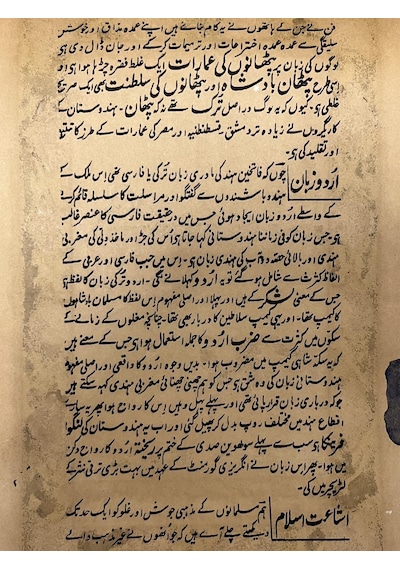 فن نے جن کے ہاتھوں نے یہ کام جانے ہیں اپنے عمدہ مذاق اور خوشتر
سلیقگی سے عمدہ عمدہ اختراعات اور ترمیمات کر کے اور جان ڈال دی ہو
لوگوں کی زبان پر پٹھانوں کی عمارات ایک غلط فقرہ چڑھا ہوا ہو اور
اسی طرح پٹھان بادشاہ اور پٹھانوں کی سلطنت بھی ایک صریح
غلطی ہو۔ کیوں کہ یہ لوگ در اصل ترک تھے نہ کہ پٹھان۔ ہندوستان کے
کاریگروں نے زیادہ تر دمشق، قسطنطنیہ اور مصر کی عمارات کے طرز کا تتبع
اور تقلید کی ہو۔
اردو زبان چوں کہ فاتحین ہند کی مادری زبان ترکی یا فارسی تھی اس ملک کے
ہندو باشندوں سے گفتگو اور مراسلت کا سلسلہ قائم کرنے
کے واسطے اردو زبان ایجاد ہوئی جس میں درحقیقت فارسی کا عنصر غالب
ہو۔ جس زبان کو فی زماننا ہندوستانی کہا جاتا ہو اس کی جڑ اور ماخذ دلی کی مغربی
ہندی اور بالائی حصہ دوآب کی ہندی زبان ہو۔ اس میں جب فارسی اور عربی کے
الفاظ کثرت سے شامل ہو گئے تو یہ اردو کہلانے لگی۔ اردو ترکی زبان کا لفظ ہو
جس کے معنی لشکر کے ہیں اور پہلا اور اصلی مفہوم اس لفظ کا مسلمان بادشاہوں
کا کیمپ تھا۔ اور یہی کیمپ سلاطین کا دربار بھی تھا۔ چنانچہ مغلوں کے زمانے کے
سکوں میں کثرت سے ضرب اردو کا جملہ استعمال ہوا ہو جس کے معنے ہیں
کہ یہ سکہ شاہی کیمپ میں مضروب ہوا۔ بدیں وجوہ اردو کا واقعی اور اصلی مفہوم
ہندوستانی زبان کی وہ شق ہی جس کو ہم چھنی چھنائی مغربی ہندی کہہ سکتے ہیں
جو کہ درباری زبان قرار پائی تھی اور پہلے پہل وہیں اس کا رواج ہوا پھر یہ سارے
اقطاع ہند میں مختلف روپ بدل کر پھیل گئی اور اب یہ ہندوستان کی لنگوا
فرینکا ہو سب سے پہلے سولھویں صدی کے ختم پر ریختۂ اردو کا رواج دکن
میں ہوا۔ پھر اس زبان نے انگریزی گورنمنٹ کے عہد میں بہت بڑی ترقی نثر کے
لٹریچر میں کی۔
اشاعت اسلام ہم مسلمانوں کے مذہبی جوش اور غلو کو ایک حد تک
دیکھتے چلے آرہے ہیں کہ جو انھوں نے غیر مذہب والے